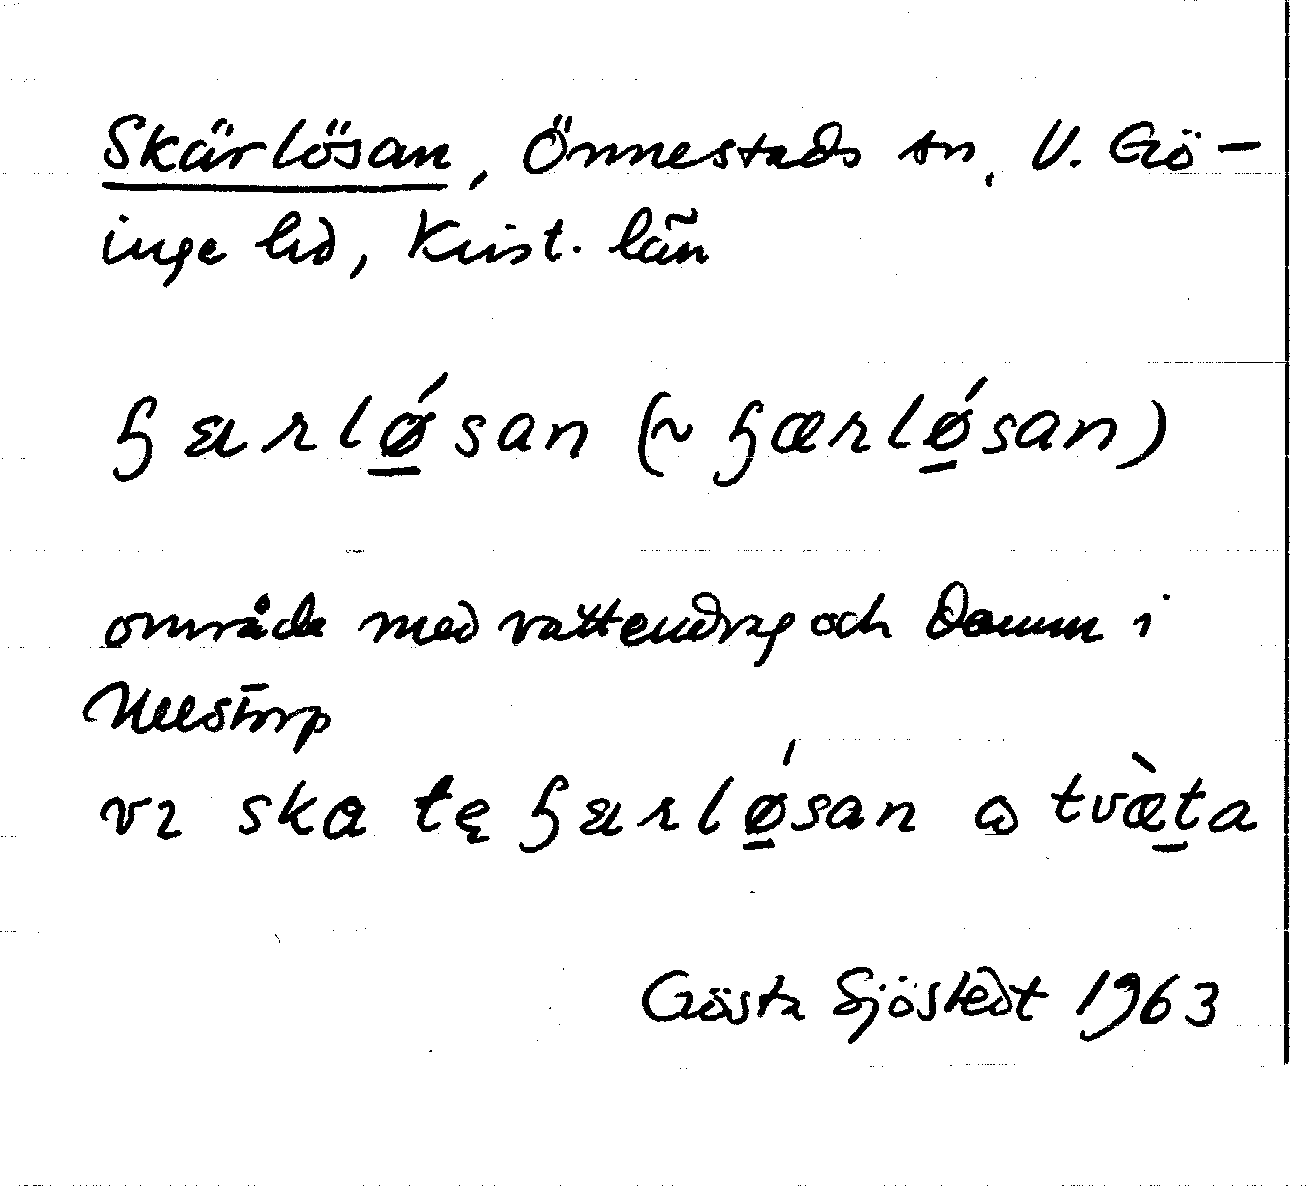 Skärlösan, Önnestads sn, V. Gö-
inge hd, Krist. län
ɧaᴇrlǿ̱san (~ ɧærlǿ̱san)
område med vattendrag och damm i
vı ska tę ɧaᴇrlǿ̱san ɷ tvæ̀ṯa
Gösta Sjöstedt 1963